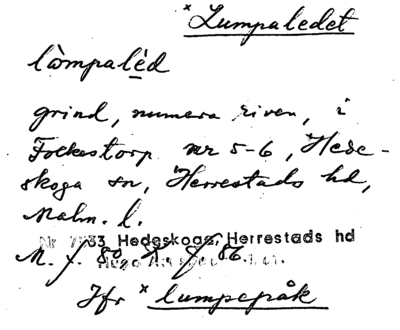 × Lumpaledet
làmpalèd
grind, numera riven, i
Folkestorp nr 5-6, Hede-
skoga sn, Herrestads hd,
Malm. l.
Nr 7733 Hedeskoga, Herrestads hd
M. f. 80
86
Jfr × lumpepåk